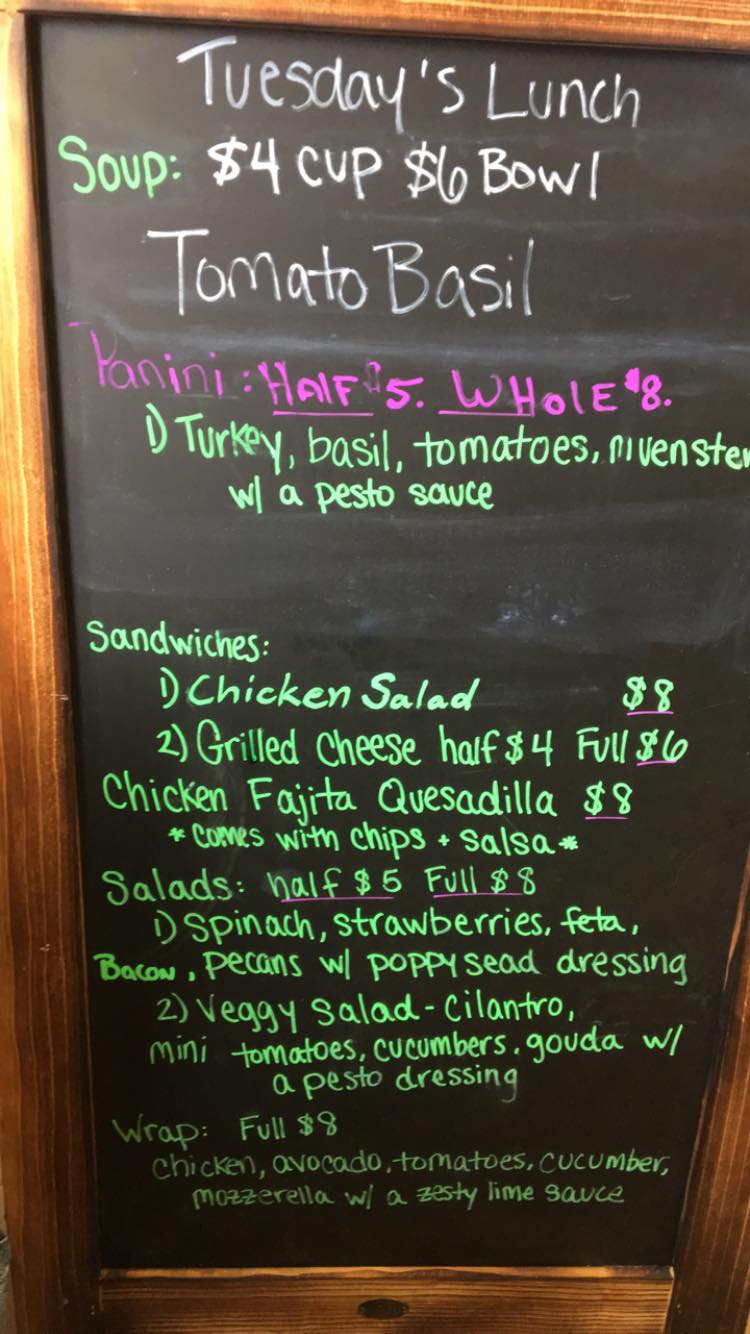 Tuesday's Lunch
Soup: $4 CUP $6 Bowl
Tomato Basil
Panini: HAlF $5. WHolE $8.
1) Turkey, basil, tomatoes, muenster
w/ a pesto sauce
Sandwiches:
1) Chicken Salad $8
2) Grilled Cheese half $4 Full $6
Chicken Fajita Quesadilla $8
*comes with chips + salsa*
Salads: half $5 Full $8
1) Spinach, strawberries, feta,
Bacon, pecans w/ poppy sead dressing
2) Veggy Salad - Cilantro,
mini tomatoes, cucumbers, gouda w/
a pesto dressing
Wrap: Full $8
chicken, avocado, tomatoes, cucumber,
mozzerella w/ a zesty lime sauce